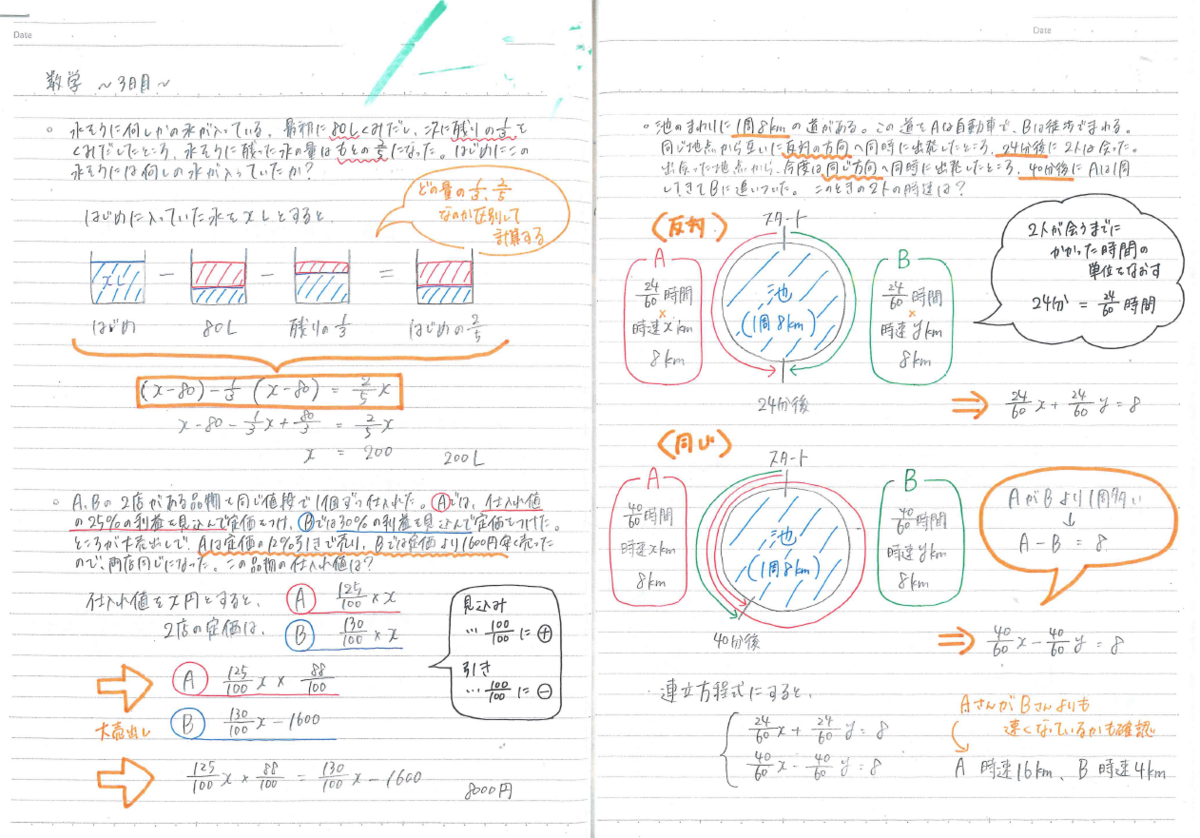 Date
数学 ～3日目～
。水そうに何Lかの水が入っている。最初に80Lくみだし、次に残りの1/3を
くみだしたところ、水そうに残った水の量はもとの2/5になった。はじめにこの
水そうには何Lの水が入っていたか？
どの量の1/3、2/5
なのか区別して
計算する
はじめに入っていた水をxLとすると、
xL － － ＝
はじめ 80L 残りの1/3 はじめの2/5
(x-80)-1/3(x-80)=2/5x
x-80-1/3x+80/3=2/5x
x = 200 200L
。A、Bの2店がある品物を同じ値段で1個ずつ仕入れた。Aでは、仕入れ値
の25%の利益を見込んで定価をつけ、Bでは30%の利益を見込んで定価をつけた。
ところが大売出しで、Aは定価の12%引きで売り、Bでは定価より1600円安く売った
ので、両店同じになった。この品物の仕入れ値は？
仕入れ値をx円とすると、
2店の定価は、
A 125/100×x
B 130/100×x
見込み
…100/100に＋
引き
…100/100に－
A 125/100x×88/100
B 130/100x-1600
大売出し
125/100x×88/100=130/100x-1600 8000円
Date
。池のまわりに1周8kmの道がある。この道をAは自動車で、Bは徒歩でまわる。
同じ地点から互いに反対の方向へ同時に出発したところ、24分後に2人は会った。
出会った地点から、今度は同じ方向へ同時に出発したところ、40分後にAは1周
してきてBに追いついた。このときの2人の時速は？
〈反対〉
スタート
A
24/60時間
×
時速xkm
8km
池
(1周8km)
B
24/60時間
×
時速ykm
8km
24分後
2人が会うまでに
かかった時間の
単位をなおす
24分 = 24/60時間
⇒ 24/60x+24/60y=8
〈同じ〉
スタート
A
40/60時間
時速xkm
8km
池
(1周8km)
B
40/60時間
時速ykm
8km
40分後
AがBより1周多い
↓
A-B=8
⇒ 40/60x-40/60y=8
連立方程式にすると、
24/60x+24/60y=8
40/60x-40/60y=8
AさんがBさんよりも
速くなっているかも確認
A 時速16km、B 時速4km